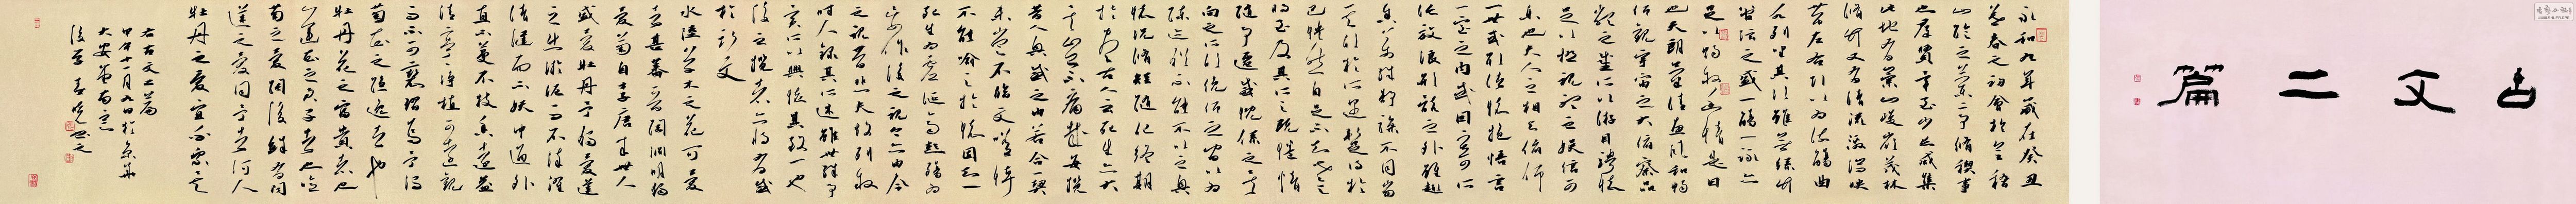 古文二篇
永和九年歲在癸丑
暮春之初會於會稽
山陰之蘭亭脩禊事
也群賢畢至少長咸集
此地有崇山峻嶺茂林
脩竹又有清流激湍映
帶左右引以為流觴曲
水列坐其次雖無絲竹
管弦之盛一觴一詠亦
足以暢敘幽情是日
也天朗氣清惠風和暢
仰觀宇宙之大俯察品
類之盛所以游目騁懷
足以極視聽之娛信可
樂也夫人之相與俯仰
一世或取諸懷抱悟言
一室之內或因寄所
託放浪形骸之外雖趣
舍萬殊靜躁不同當
其欣於所遇暫得於
己快然自足不知老之
將至及其所之既倦情
隨事遷感慨係之矣
向之所欣俛仰之間以為
陳跡猶不能不以之興
懷況脩短隨化終期
於盡古人云死生亦大
矣豈不痛哉每攬
昔人興感之由若合一契
未嘗不臨文嗟悼
不能喻之於懷固知一
死生為虛誕齊彭殤為
妄作後之視今亦由今
之視昔悲夫故列敘
時人錄其所述雖世殊事
異所以興懷其致一也
後之攬者亦將有感
於斯文
水陸草木之花可愛
者甚蕃晉陶淵明獨
愛菊自李唐來世人
盛愛牡丹予獨愛蓮
之出淤泥而不染濯
清漣而不妖中通外
直不蔓不枝香遠益
清亭亭淨植可遠觀
而不可褻玩焉予謂
菊花之隱逸者也
牡丹花之富貴者也
蓮花之君子者也噫
菊之愛陶後鮮有聞
蓮之愛同予者何人
牡丹之愛宜乎眾矣
右古文二篇
甲午十一月九日於京華
大安南窗
後學書之